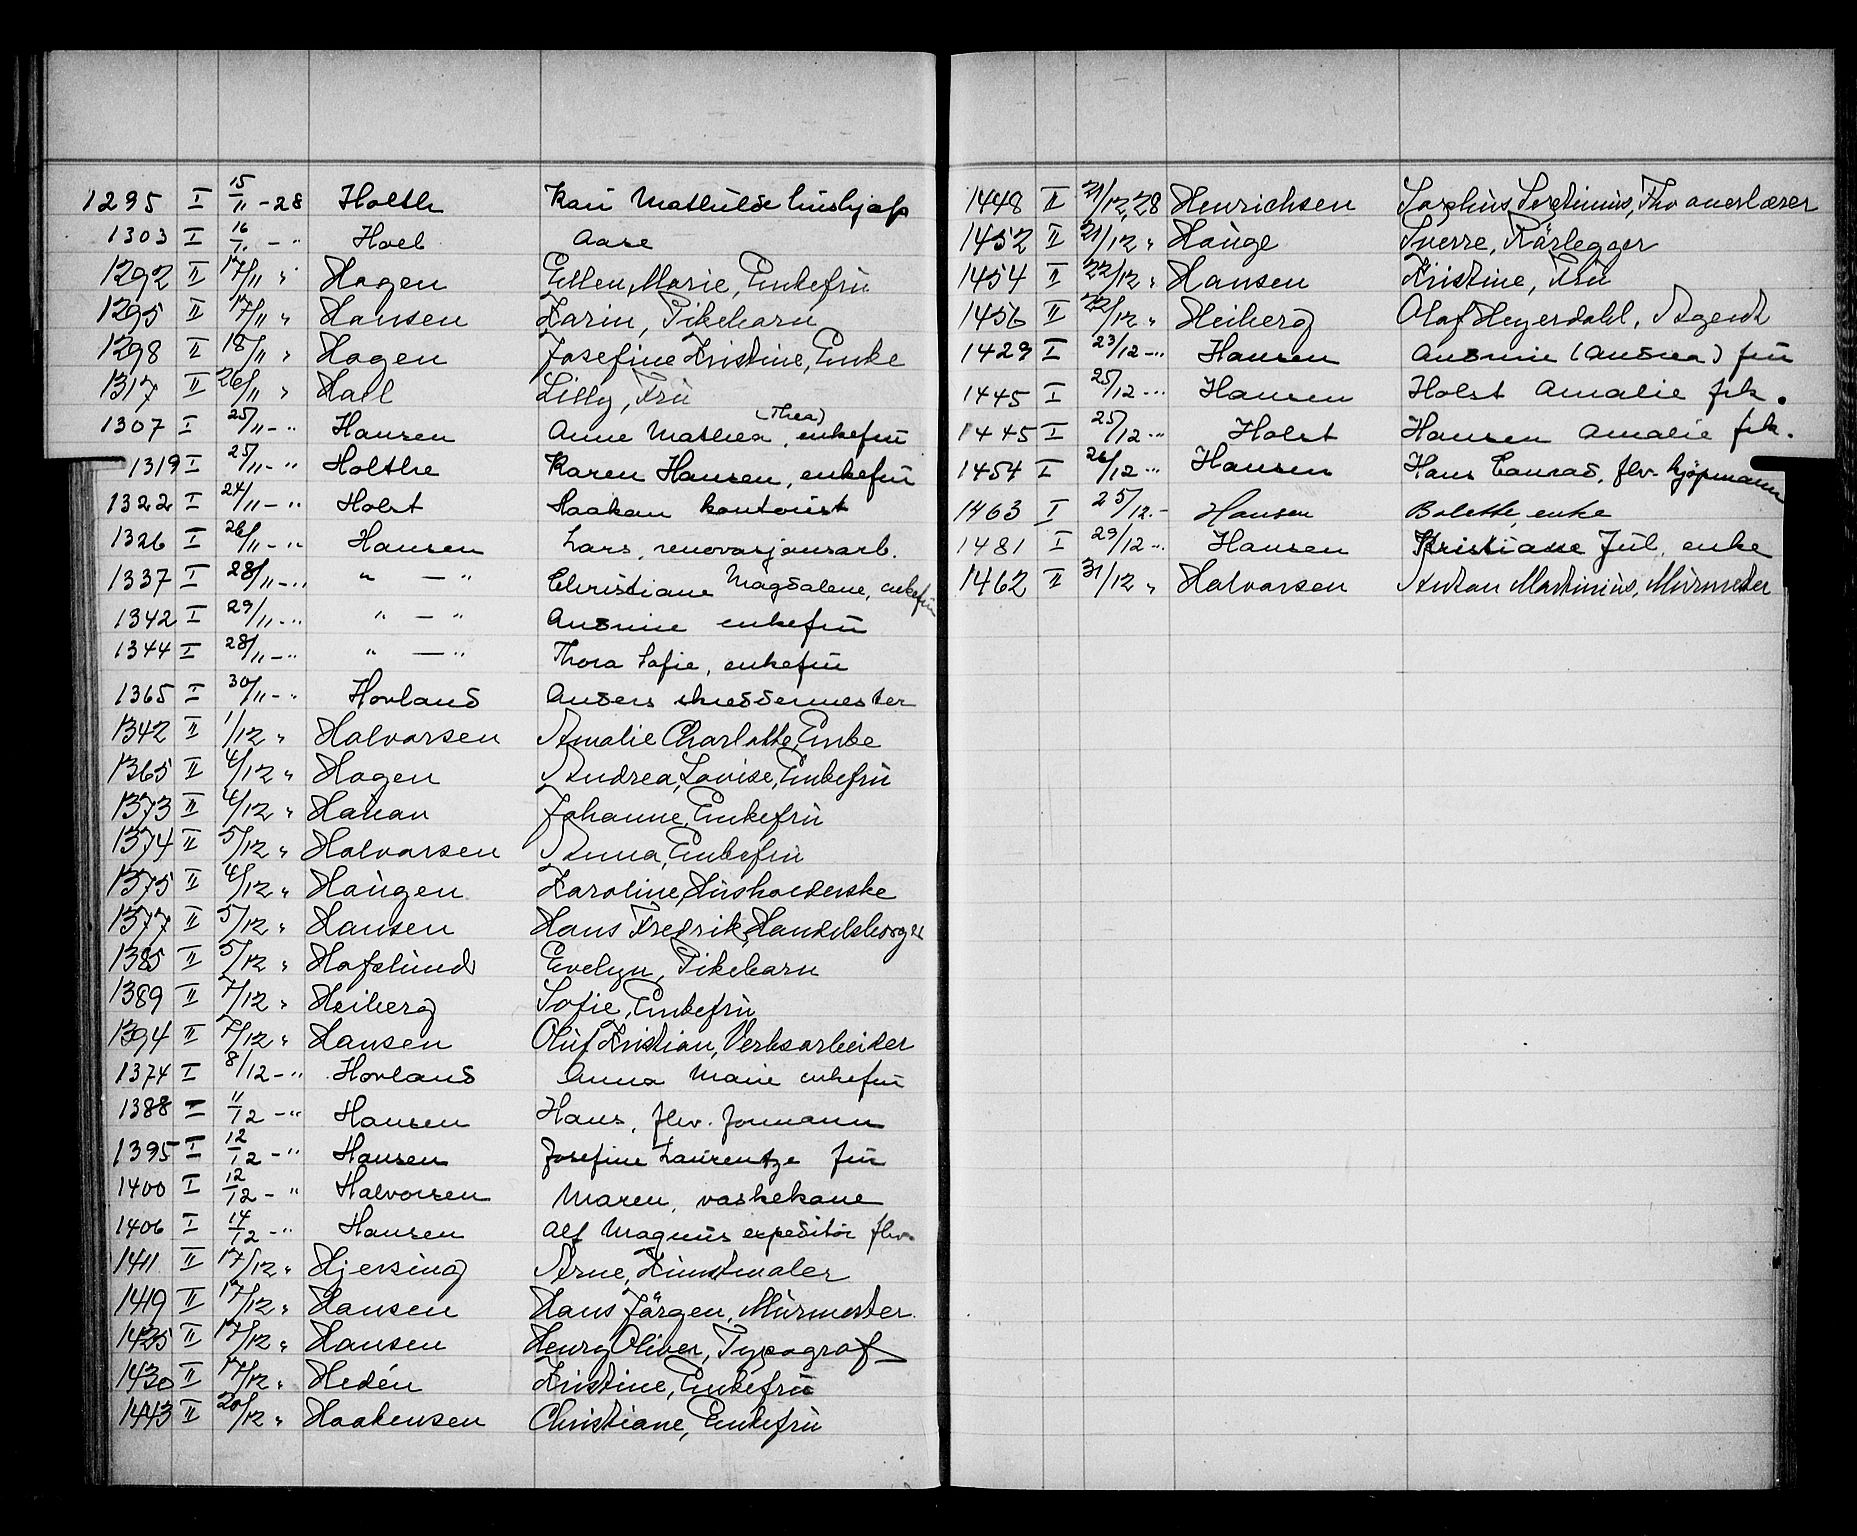 1295 I 15/11 -28 Holth Kari Mathilde hushjelp
1303 I 16/11 - " Hoel Aase
1292 II 17/11 " Hagen Ellen Marie, Enkefru
1295 II 17/11 " Hansen Karin, Pikebarn
1298 II 18/11 " Hagen Josefine Kristine, Enke
1317 II 26/11 " Hall Lilly, Fru
1307 I 25/11 - " Hansen Anne Mathea (Thea), enkefru
1319 I 25/11 - " Holthe Karen Hansen, enkefru
1322 I 24/11 - " Holst Haakon kontorist
1326 I 26/11 - " Hansen Lars, renovasjonsarb.
1337 I 28/11 - " " — " Christiane Magdalene, enkefru
1342 I 29/11 - " " — " Andrine enkefru
1344 I 28/11 - " " — " Thora Sofie, enkefru
1365 I 30/11 - " Hovland Anders skreddermester
1342 II 1/12 " Halvorsen Amalie Charlotte, Enke
1365 II 4/12 " Hagen Andrea, Lovise, Enkefru
1373 II 4/12 " Hauan Johanne, Enkefru
1374 II 5/12 " Halvorsen Anna, Enkefru
1375 II 4/12 " Haugen Karoline, Husholderske
1377 II 5/12 " Hansen Hans Fredrik, Handelsborger
1385 II 5/12 " Hafslund Evelyn, Pikebarn
1389 II 7/12 " Heiberg Sofie, Enkefru
1394 II 7/12 " Hansen Oluf Kristian, Verksarbeider
1374 I 8/12 - " Hovland Anna Marie enkefru
1388 I 11/12 - " Hansen Hans, fhv. formann
1395 I 12/12 - " Hansen Josefine Laurentze fru
1400 I 12/12 - " Halvorsen Maren, vaskekone
1406 I 14/12 - " Hansen Alf Magnus expeditør fhv.
1411 II 17/12 " Hjersing Arne, Kunstmaler
1419 II 17/12 " Hansen Hans Jørgen, Murmester
1425 II 17/12 " Hansen Henry Oliver, Typograf
1430 II 17/12 " Hedén Kristine, Enkefru
1443 II 20/12 " Haakensen Christiane, Enkefru
1448 II 21/12 28 Henrichsen Sophus
1452 II 21/12 " Hauge Sverre, Rørlegger
1454 II 22/12 " Hansen Kristine, Fru
1456 II 22/12 " Heiberg Olaf Heyerdahl, Agent
1429 I 23/12 - " Hansen Andrine (Andrea) fru
1445 I 25/12 - " Hansen Holst Amalie frk.
1445 I 25/12 - " Holst Hansen Amalie frk.
1454 I 26/12 - " Hansen Hans Conrad, fhv. kjøpmann
1463 I 25/12 - Hansen Bolette, enke
1481 I 29/12 - " Hansen Kristiane Jul. enke
1462 II 31/12 " Halvorsen Anton Martinius, Murmester